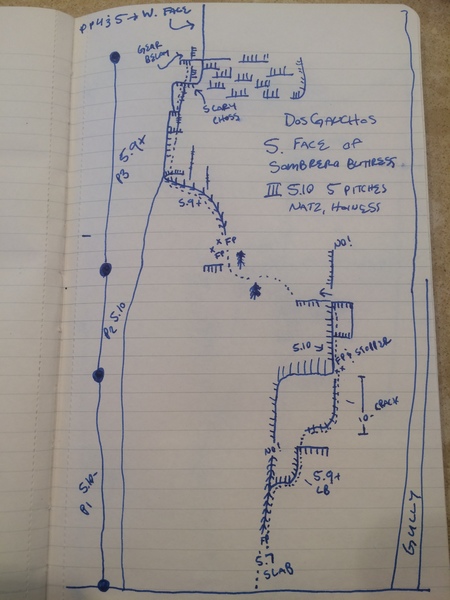 PP4 & 5 → W. FACE
GEAR
BELAY
SCARY
CHOSS
DOS GAUCHOS
S. FACE OF
SOMBRERO BUTTRESS
III 5.10 5 PITCHES
NATZ, HOINESS
P3 5.9X
5.9+
x FP
x FP
NO!
P2 5.10
5.10
FP & STOPPER
CRACK
P1 5.10-
5.9+
LB
5.7
SLAB
GULLY